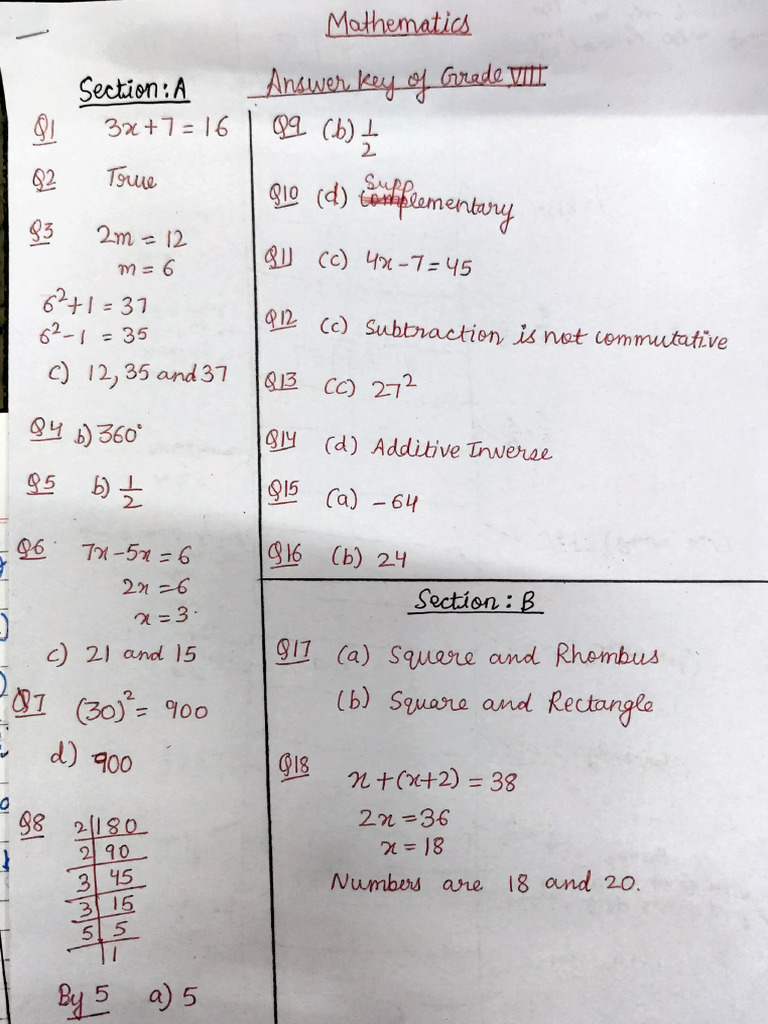 Mathematics
Answer key of Grade VIII
Section: A
Q1 3x+7=16
Q2 True
Q3 2m = 12
m = 6
6²+1 = 37
6²-1 = 35
c) 12, 35 and 37
Q4 b) 360°
Q5 b) 1/2
Q6 7x-5x = 6
2x = 6
x = 3
c) 21 and 15
Q7 (30)² = 900
d) 900
Q8 2|180
2|90
3|45
3|15
5|5
|1
By 5 a) 5
Q9 (b) 1/2
Q10 (d) Supplementary
Q11 (c) 4x-7=45
Q12 (c) Subtraction is not commutative
Q13 (c) 27²
Q14 (d) Additive Inverse
Q15 (a) -64
Q16 (b) 24
Section: B
Q17 (a) Square and Rhombus
(b) Square and Rectangle
Q18 x+(x+2) = 38
2x = 36
x = 18
Numbers are 18 and 20.